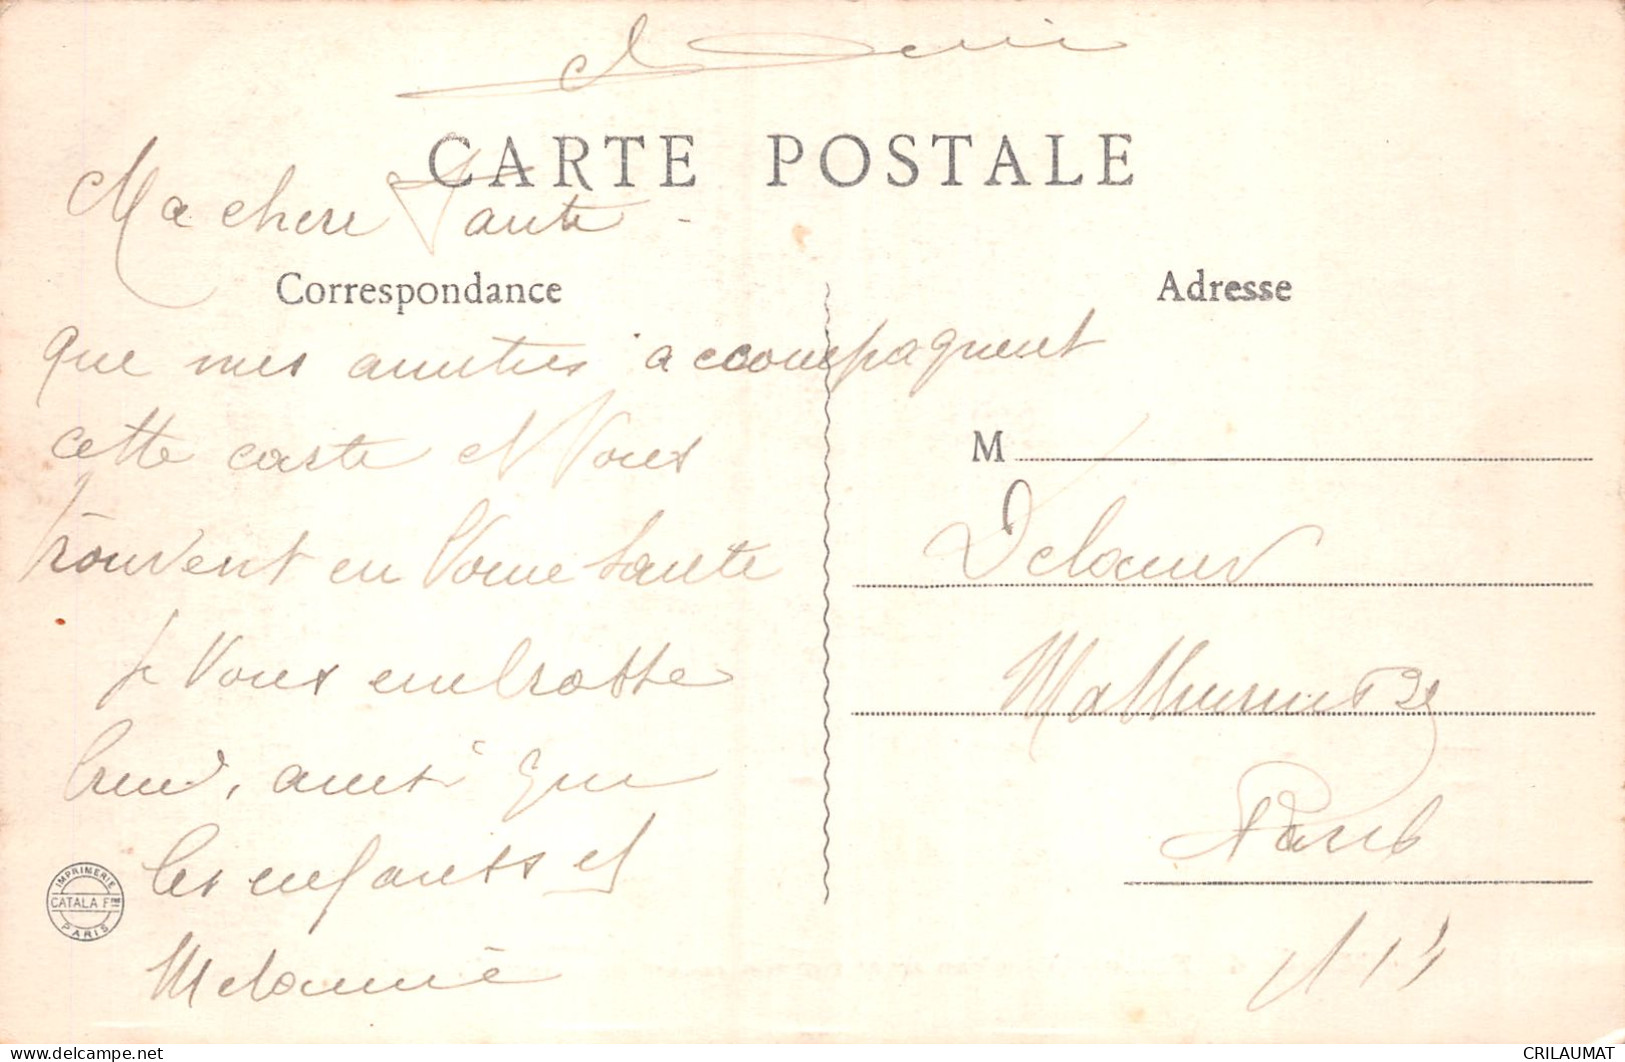 CARTE POSTALE
Ma chere Tante
Correspondance
Adresse
que mes amities accompagnent
cette carte et Vous
trouvent en bonne sante
je Vous embrasse
bien, ainsi que
les enfants et
Melanie
M
Delaur
Mathurins
Paris
IMPRIMERIE
CATALA Fres
PARIS
CRILAUMAT